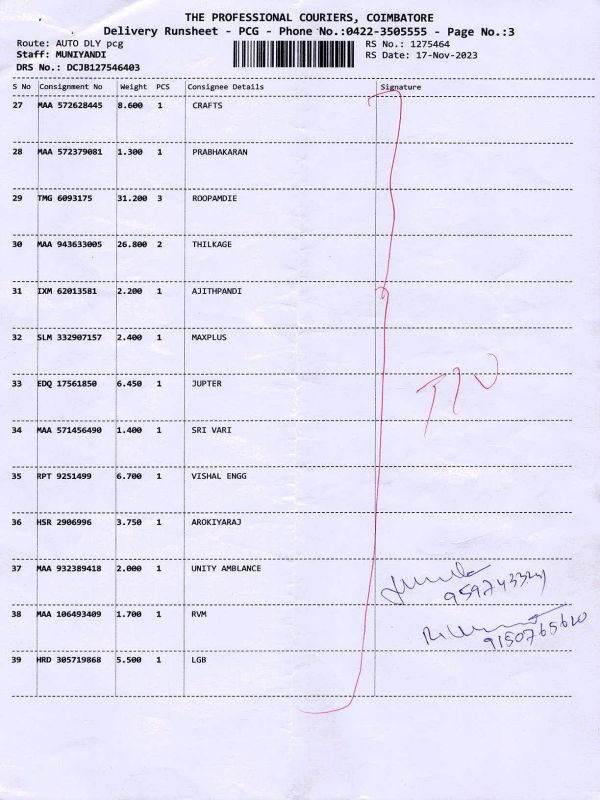 THE PROFESSIONAL COURIERS, COIMBATORE
Delivery Runsheet - PCG - Phone No.:0422-3505555 - Page No.:3
Route: AUTO DLY pcg RS No.: 1275464
Staff: MUNIYANDI RS Date: 17-Nov-2023
DRS No.: DCJB127546403
S No Consignment No Weight PCS Consignee Details Signature
27 MAA 572628445 8.600 1 CRAFTS
28 MAA 572379081 1.300 1 PRABHAKARAN
29 TMG 6093175 31.200 3 ROOPAMDIE
30 MAA 943633005 26.800 2 THILKAGE
31 IXM 62013581 2.200 1 AJITHPANDI
32 SLM 332907157 2.400 1 MAXPLUS
33 EDQ 17561850 6.450 1 JUPTER
34 MAA 571456490 1.400 1 SRI VARI
35 RPT 9251499 6.700 1 VISHAL ENGG
36 HSR 2906996 3.750 1 AROKIYARAJ
37 MAA 932389418 2.000 1 UNITY AMBLANCE
38 MAA 106493409 1.700 1 RVM
9150765620
39 HRD 305719868 5.500 1 LGB